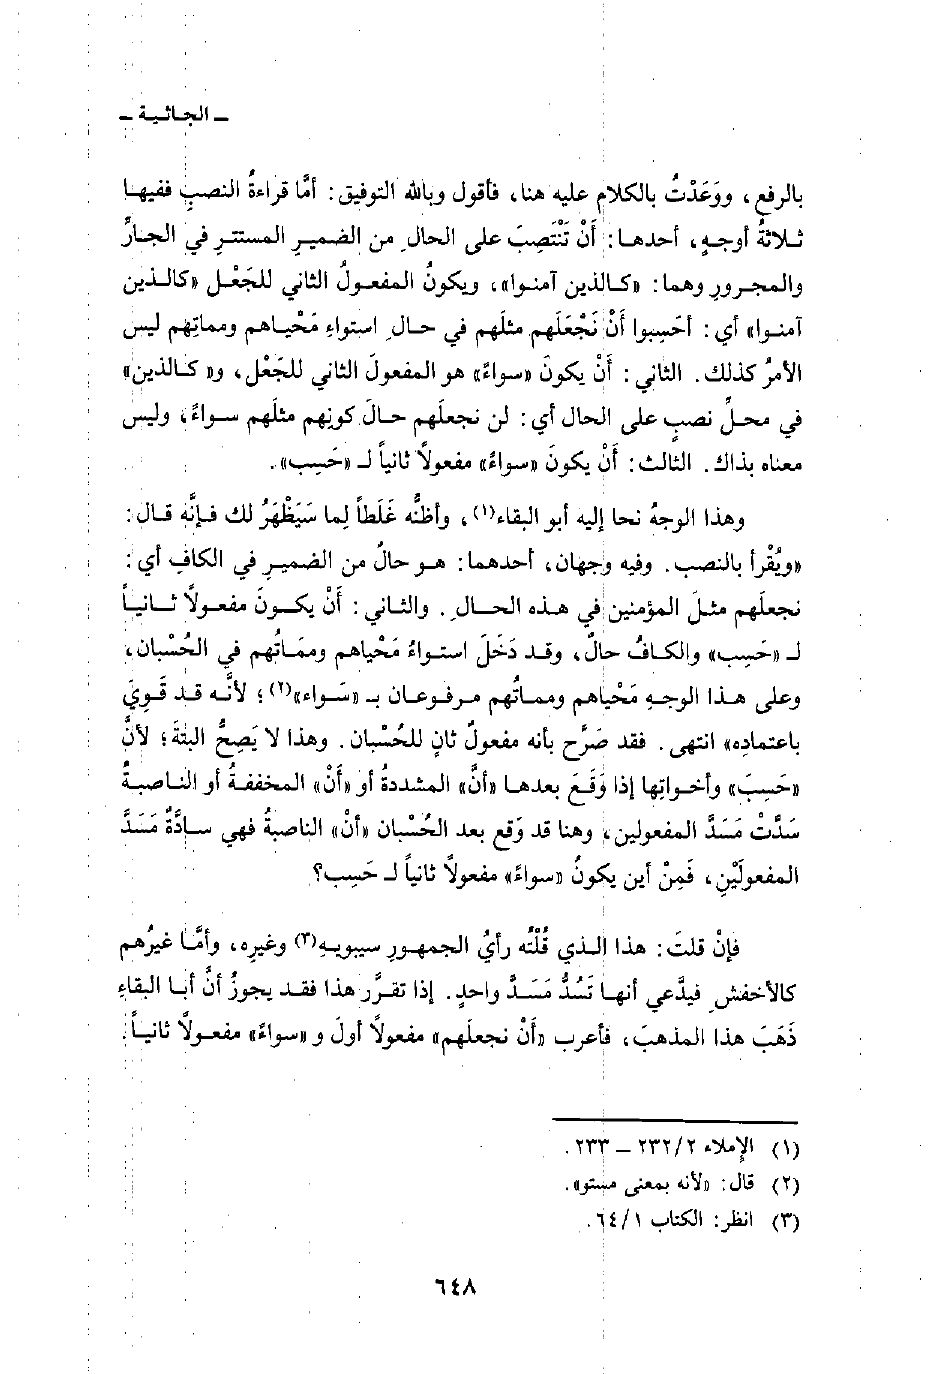 ـ الجاثية ـ
بالرفع، ووَعَدْتُ بالكلام عليه هنا، فأقول وبالله التوفيق: أمَّا قراءةُ النصبِ ففيها
ثلاثةُ أوجهٍ، أحدها: أَنْ تَنْتَصِبَ على الحالِ من الضميرِ المستترِ في الجارِّ
والمجرورِ وهما: «كالذين آمنوا»، ويكونُ المفعولُ الثاني للجَعْل «كالذين
آمنوا» أي: أحَسِبوا أَنْ نَجْعَلَهم مثلَهم في حالِ استواءِ مَحْياهم ومماتِهم ليس
الأمرُ كذلك. الثاني: أَنْ يكونَ «سواءً» هو المفعولَ الثاني للجَعْل، و«كالذين»
في محلِّ نصبٍ على الحال أي: لن نجعلَهم حالَ كونِهم مثلَهم سواءً، وليس
معناه بذاك. الثالث: أَنْ يكونَ «سواءً» مفعولاً ثانياً لـ «حَسِب».
وهذا الوجهُ نحا إليه أبو البقاء(١)، وأظنُّه غَلَطاً لِما سَيَظْهَرُ لك فإنَّه قال:
«ويُقْرأ بالنصب. وفيه وجهان، أحدهما: هو حالٌ من الضميرِ في الكافِ أي:
نجعلَهم مثلَ المؤمنين في هذه الحالِ. والثاني: أَنْ يكونَ مفعولاً ثانياً
لـ «حَسِب» والكافُ حالٌ، وقد دَخَلَ استواءُ مَحْياهم ومماتُهم في الحُسْبان،
وعلى هذا الوجهِ مَحْياهم ومماتُهم مرفوعان بـ «سَواء»(٢)؛ لأنَّه قد قَوِيَ
باعتمادِه» انتهى. فقد صَرَّح بأنه مفعولٌ ثانٍ للحُسْبان. وهذا لا يَصِحُّ البتةَ؛ لأنَّ
«حَسِبَ» وأخواتِها إذا وَقَعَ بعدها «أنَّ» المشددةُ أو «أَنْ» المخففةُ أو الناصبةُ
سَدَّتْ مَسَدَّ المفعولين، وهنا قد وَقع بعد الحُسْبان «أنْ» الناصبةُ فهي سادَّةٌ مَسَدَّ
المفعولَيْنِ، فَمِنْ أين يكونُ «سواءً» مفعولاً ثانياً لـ حَسِب؟
فإنْ قلتَ: هذا الذي قُلْتُه رأيُ الجمهورِ سيبويهِ(٣) وغيرِه، وأمَّا غيرُهم
كالأخفشِ فيدَّعي أنها تَسُدُّ مَسَدَّ واحدٍ. إذا تقرَّر هذا فقد يجوزُ أنَّ أبا البقاءِ
ذَهَبَ هذا المذهبَ، فأعرب «أَنْ نجعلَهم» مفعولاً أولَ و «سواءً» مفعولاً ثانياً.
(١) الإملاء ٢/‏٢٣٢ ـ ٢٣٣.
(٢) قال: «لأنه بمعنى مستو».
(٣) انظر: الكتاب ١/‏٦٤.
٦٤٨